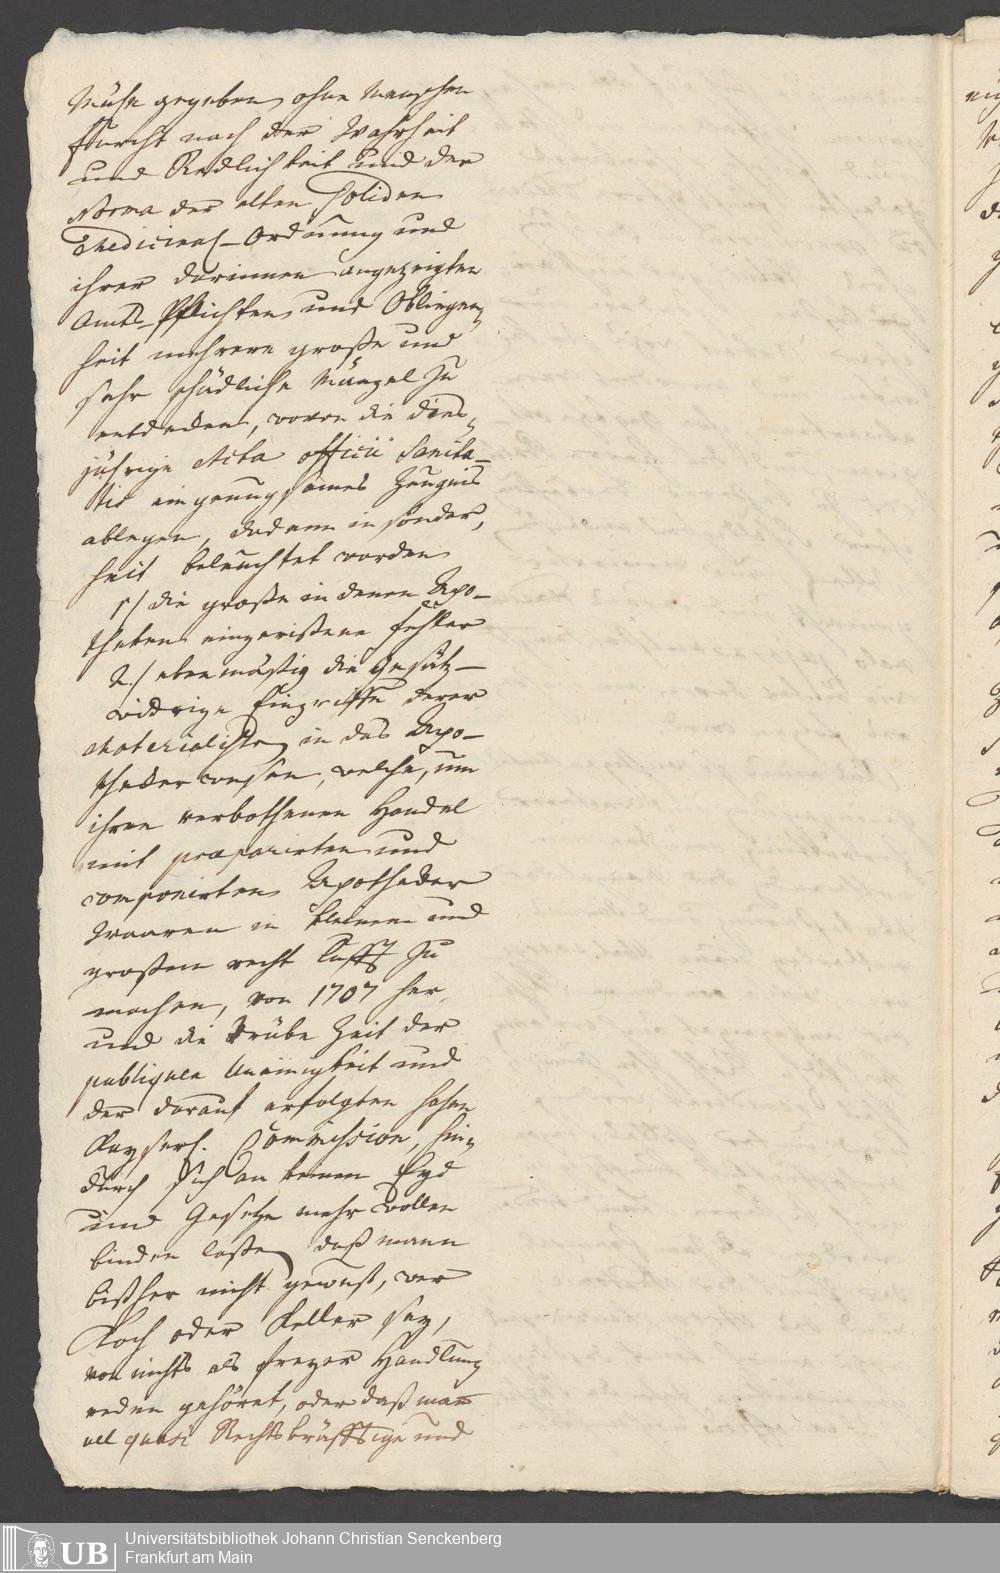 Mühe gegeben, ohne Menschen
Furcht nach der Wahrheit
und Redlichkeit und der
Norma der alten soliden
Medicinal-Ordnung und
ihrer darinnen angezeigten
Amts-Pflichten, und Obliegen-
heit mehrere große und
sehr schädliche Mängel zu
entdecken, wovon die dies-
jährige Acta officii Sanita-
tis ein genungsames Zeugnis
ablegen, da denn in sonder-
heit beleuchtet worden
1./ die große in denen Apo-
theken eingerißene Fehler
2./ ebenmäßig die Gesätz-
widrige Eingriffe derer
Materialisten, in das Apo-
thecker wesen, welche, um
ihren verbothenen Handel
mit præparirten und
componirten Apothecker
Waaren in kleinem und
großem recht
machen, von 1707 her,
und die trübe Zeit der
publiquen Uneinigkeit und
der darauf erfolgten hohen
Kayserl. Commission, hin-
durch sich an keinen Eyd
und Gesetze mehr wollen
binden laßen, daß mann
bißher nicht gewust, wer
Koch oder Keller sey,
von nichts als freyer Handlung
reden gehöret, oder daß man
all quasi Rechtskräfftige und
Universitätsbibliothek Johann Christian Senckenberg
Frankfurt am Main
UB